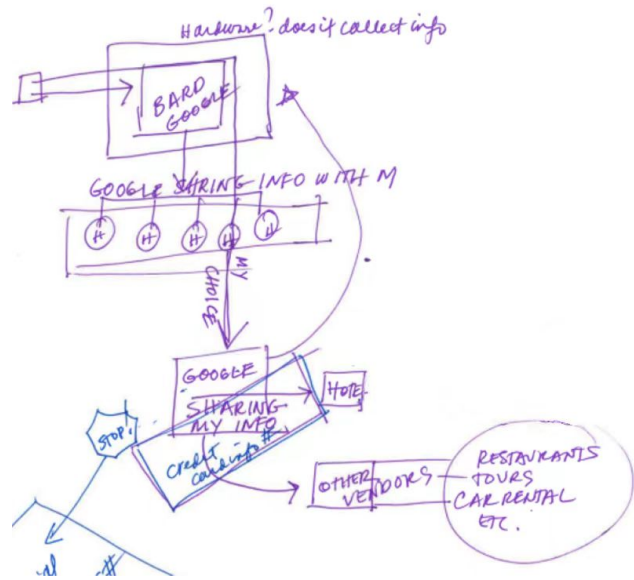 Hardware? does it collect info
BARD
GOOGLE
GOOGLE SHRING INFO WITH M
H H H H H
MY
CHOICE
GOOGLE
SHARING
MY INFO
HOTE
STOP!
credit
card info #
OTHER
VENDORS
RESTAURANTS
TOURS
CAR RENTAL
ETC.
#